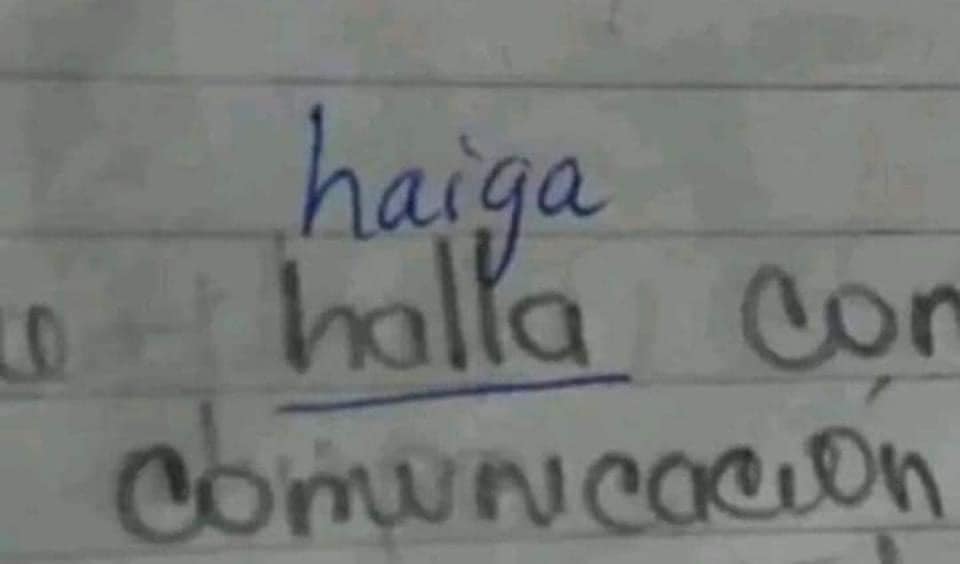 haiga
halla con
comunicación